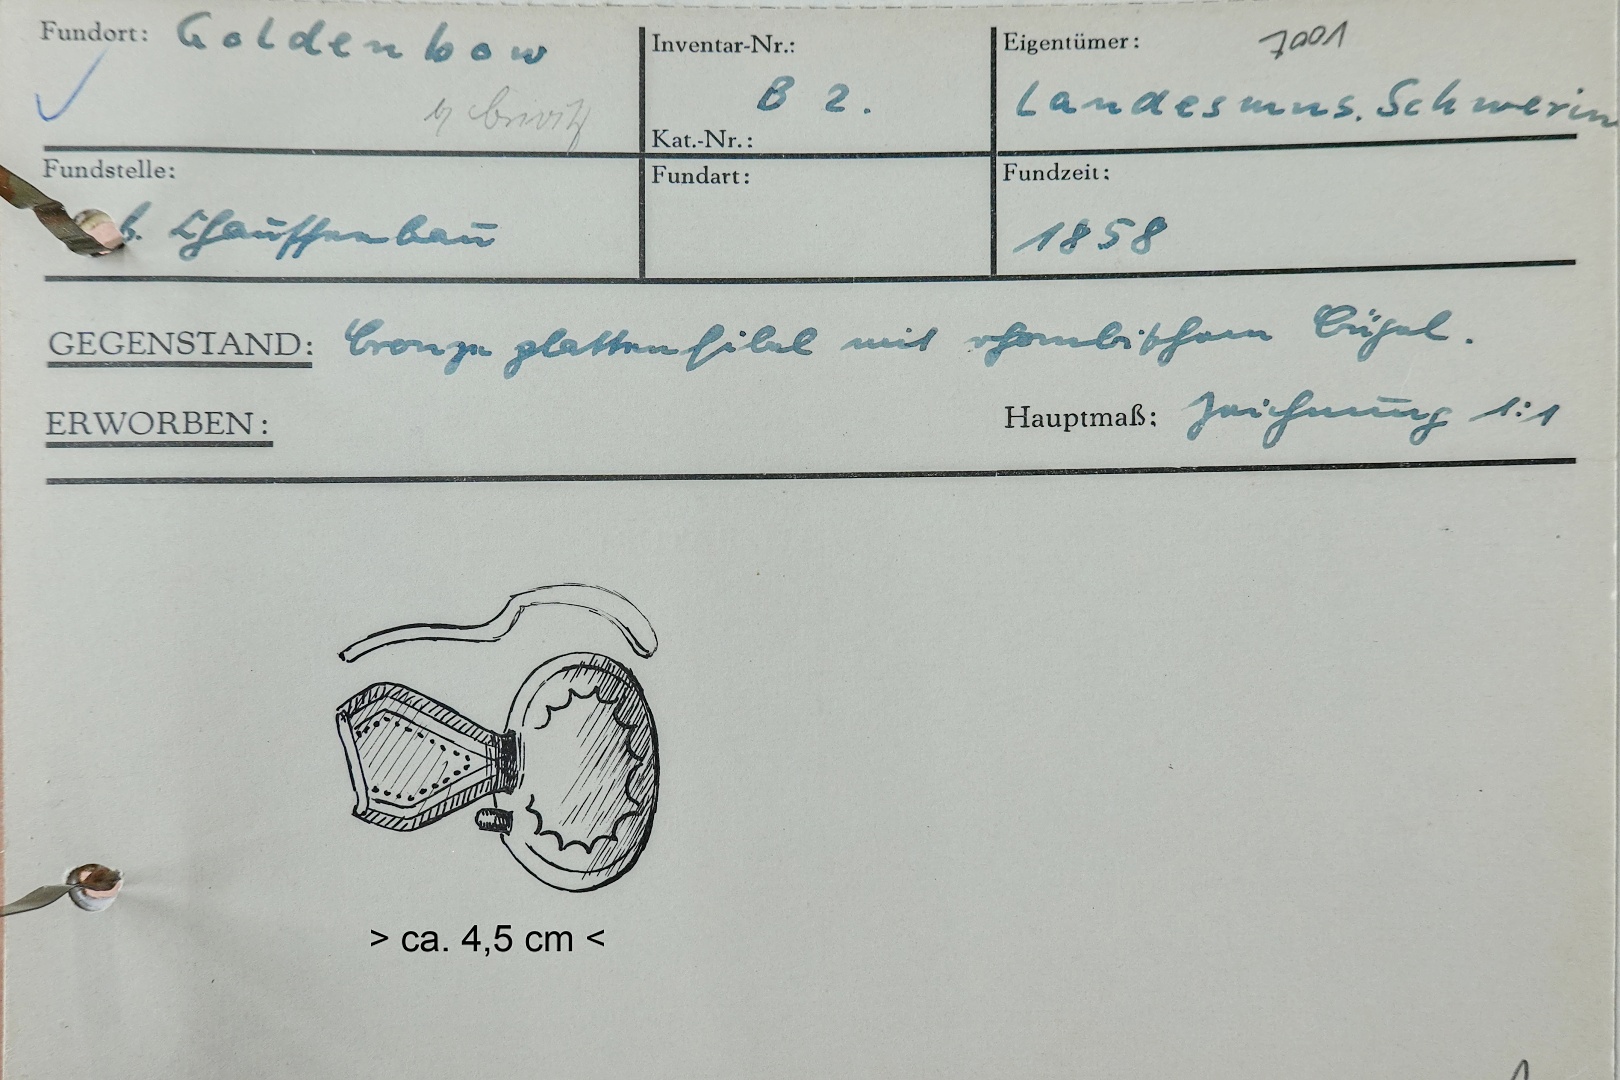 Fundort: Goldenbow
b/ Crivitz
Inventar-Nr.:
B 2.
Kat.-Nr.:
Eigentümer: 7001
Landesmus. Schwerin
Fundstelle:
b. Chausseebau
Fundart:
Fundzeit:
1858
GEGENSTAND: Bronzeplattenfibel mit rhombischem Bügel.
ERWORBEN:
Hauptmaß: Zeichnung 1:1
> ca. 4,5 cm <